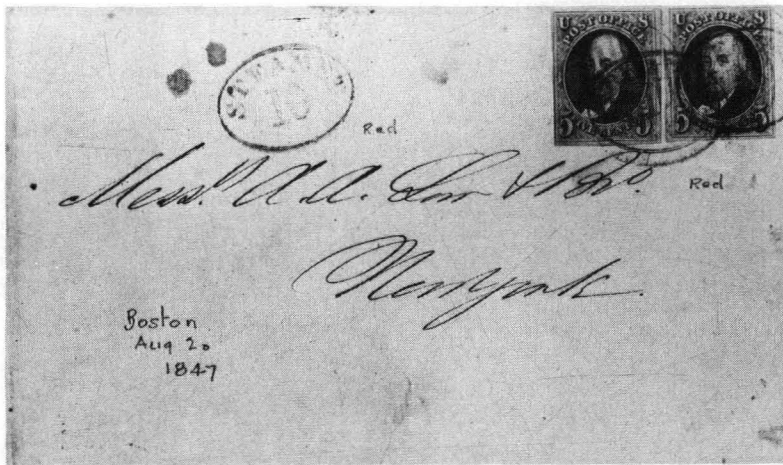 U S U S
POST OFFICE POST OFFICE
5 5 5 5
STEAMER
10
Red
Red
Messrs A. A. Low & Bro.
New York
Boston
Aug 20
1847